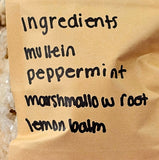 Ingredients
mullein
peppermint
marshmallow root
lemon balm